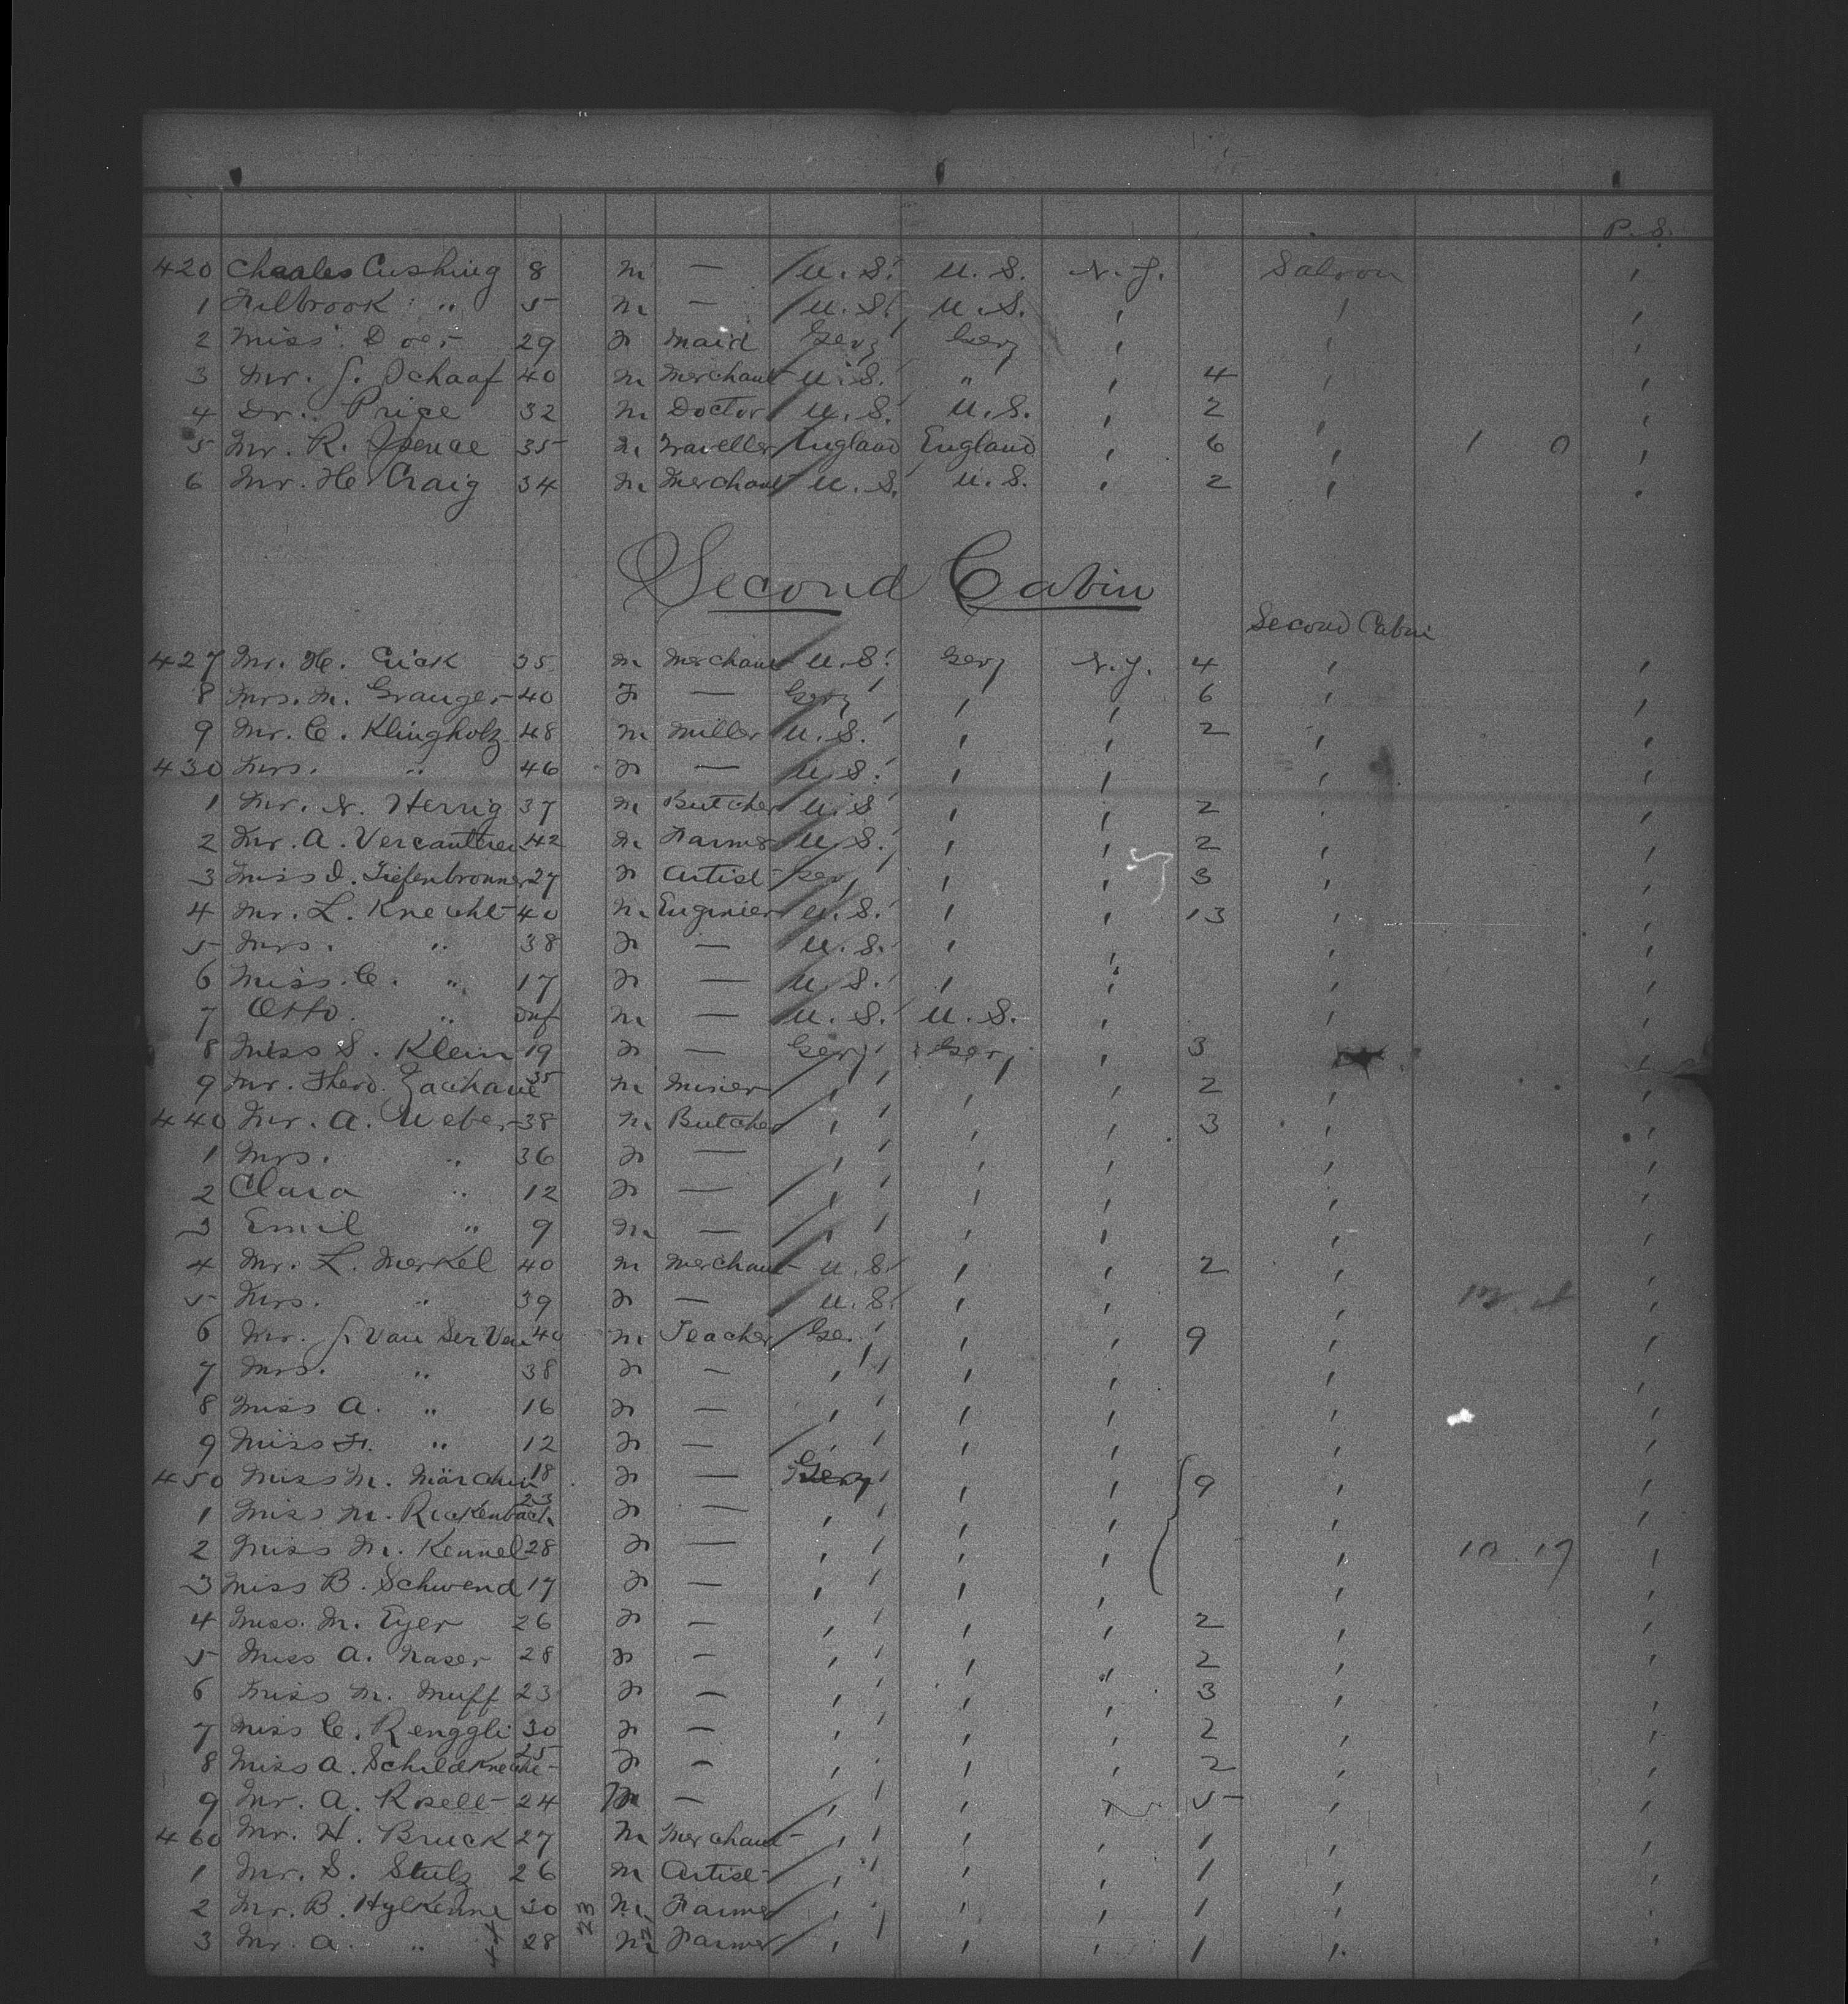 P.S.
420 Charles Cushing 8 m — U.S. U.S. N.Y. Saloon ,
1 " 5 m — U.S. U.S. , , ,
2 Miss 29 F Maid Gery Gery , , ,
3 Mr. J. Schaaf 40 m Merchant U.S. " , 4 , ,
4 Dr. Price 32 m Doctor U.S. U.S. , 2 , ,
5 Mr. R. Spence 35 m Traveller England England , 6 , 1 0 ,
6 Mr. H. Craig 34 m Merchant U.S. U.S. , 2 , ,
Second Cabin
Second Cabin
427 Mr. H. 35 m Merchant U.S. Gery N.Y. 4 , ,
8 Mrs. M. Granger 40 F — Gery , , 6 , ,
9 Mr. C. Klingholz 48 m Miller U.S. , , 2 , ,
430 Mrs. " 46 F — U.S. , , , ,
1 Mr. N. Herrig 37 m Butcher U.S. , , 2 , ,
2 Mr. A. 42 m Farmer U.S. , , 2 , ,
3 Miss Tiefenbronner 27 F Artist Gery , , 3 , ,
4 Mr. L. Knecht 40 m Enginier U.S. , , 13 , ,
5 Mrs. " 38 F — U.S. , , , ,
6 Miss C. " 17 F — U.S. , , , ,
7 Otto " Inf m — U.S. U.S. , , ,
8 Miss S. Klein 19 F — Gery Gery , 3 ,
9 Mr. Theo. 35 m Miner , , , 2 , ,
440 Mr. A. Weber 38 m Butcher , , , 3 , ,
1 Mrs. " 36 F — , , , , ,
2 Clara " 12 F — , , , , ,
3 Emil " 9 m — , , , , ,
4 Mr. L. Merkel 40 m Merchant U.S. , , 2 , ,
5 Mrs. " 39 F — U.S. , , , ,
6 Mr. J. Van Der Ven 40 m Teacher Ge. , , 9 , ,
7 Mrs. " 38 F — , , , , ,
8 Miss A. " 16 F — , , , , ,
9 Miss H. " 12 F — , , , , ,
450 Miss M. 18 F — Gery , , 9 , ,
1 Miss M. Rickenbach 23 F — , , , , ,
2 Miss M. Kennel 28 F — , , , , ,
3 Miss B. Schwend 17 F — , , , , ,
4 Miss. M. Eyer 26 F — , , , 2 , ,
5 Miss A. Naser 28 F — , , , 2 , ,
6 Miss M. Muff 23 F — , , , 3 , ,
7 Miss C. Renggli 30 F — , , , 2 , ,
8 Miss A. Schildknecht 25 F — , , , 2 , ,
9 Mr. A. 24 M — , , , 5 , ,
460 Mr. H. Bruck 27 m Merchant , , , 1 , ,
1 Mr. S. Stulz 26 m Artist , , , 1 , ,
2 Mr. B. 30 23 m Farmer , , , 1 , ,
3 Mr. A. " 28 m Farmer , , , 1 , ,